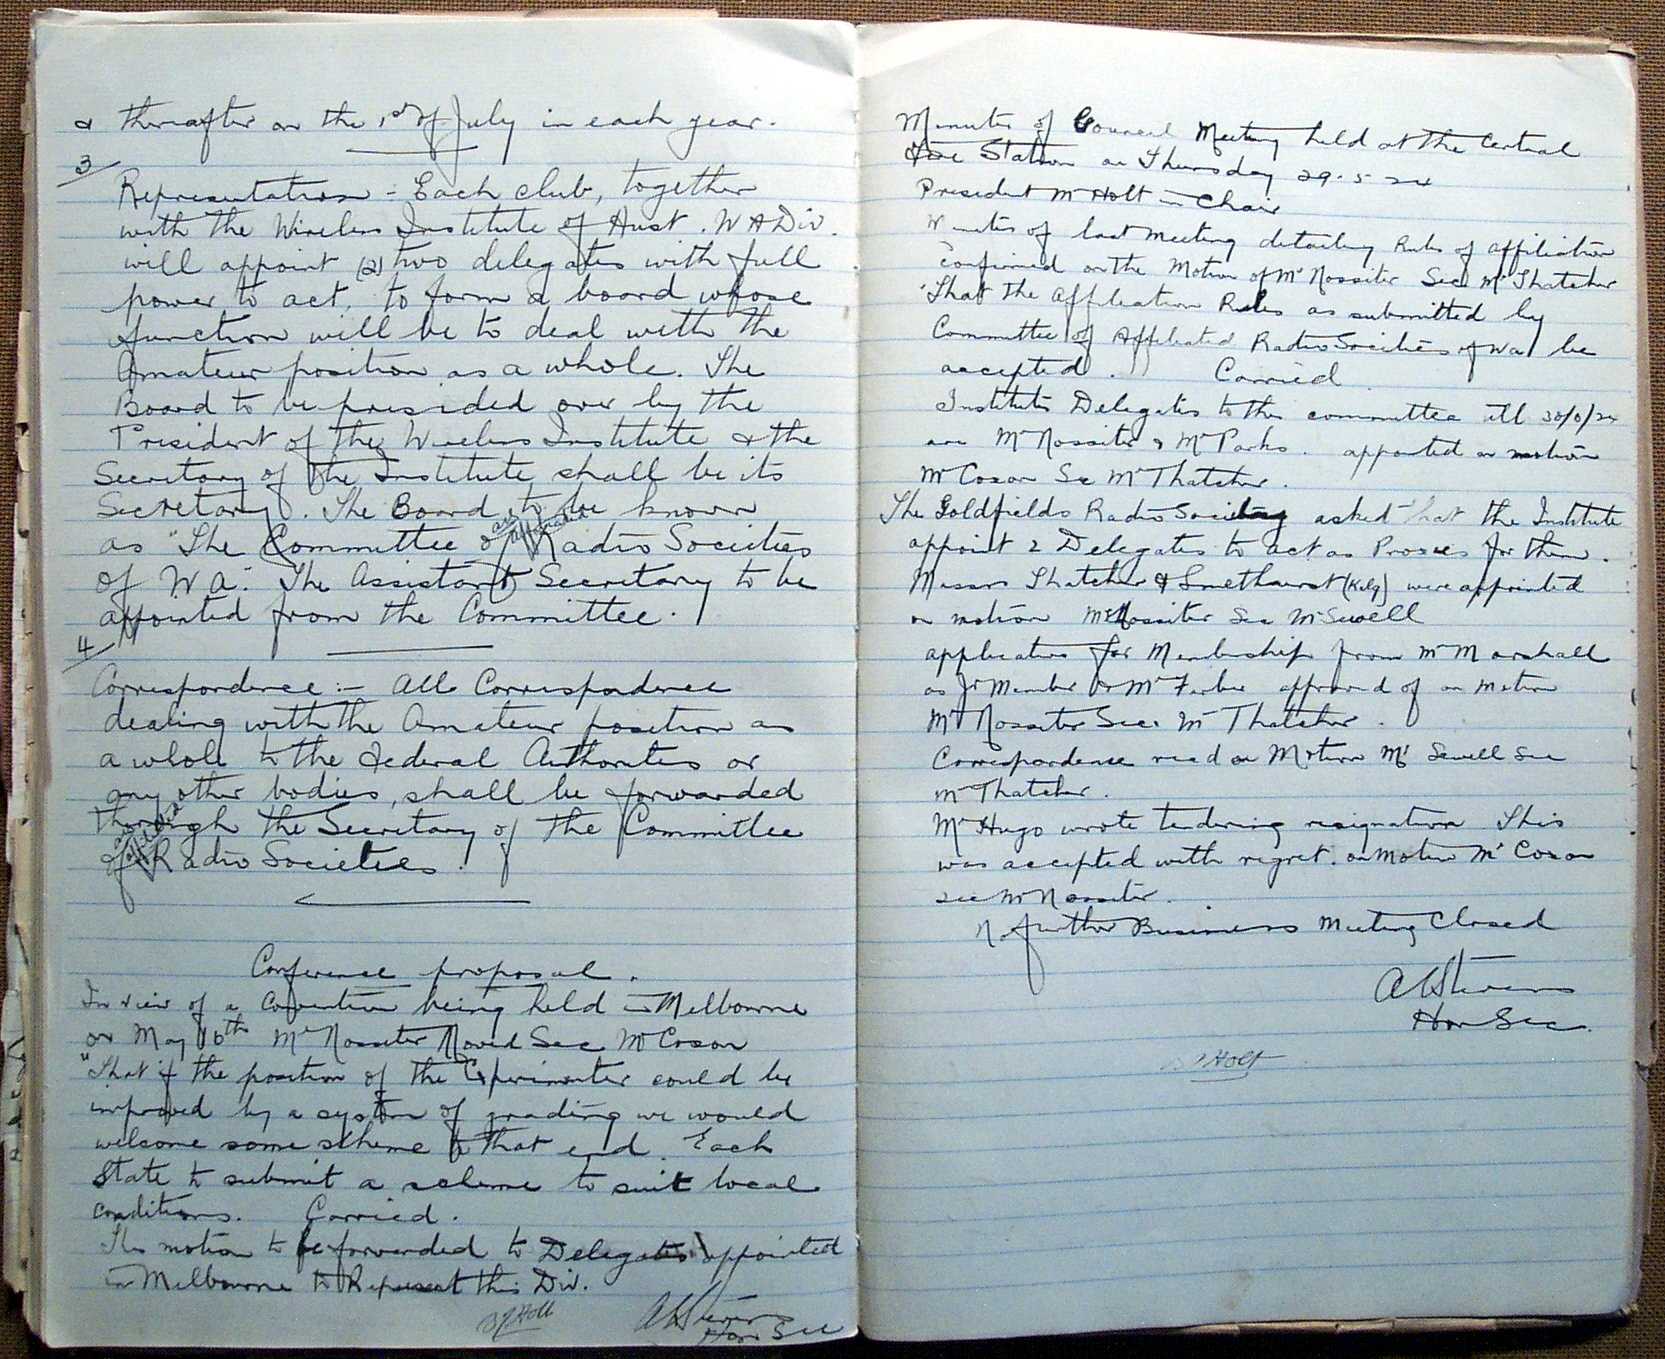 & thereafter on the 1st of July in each year.
3/
Representation = Each club, together
with the Wireless Institute of Aust. W A Div.
will appoint (2) two delegates with full
power to act, to form a board whose
function will be to deal with the
Amateur position as a whole. The
Board to be presided over by the
President of the Wireless Institute & the
Secretary of the Institute shall be its
Secretary. The Board to be known
as "The Committee of affiliated Radio Societies
of W A". The Assistant Secretary to be
appointed from the Committee.
4/
Correspondence :- All Correspondence
dealing with the Amateur position as
a whole to the Federal Authorities or
any other bodies, shall be forwarded
through the Secretary of the Committee
of Radio Societies.
Conference proposal.
In view of a Convention being held in Melbourne
on May 16th Mr Rossiter Moved Sec Mr Coxon
"That if the position of the Experimenter could be
improved by a system of grading we would
welcome some scheme to that end. Each
State to submit a scheme to suit local
conditions. Carried.
This motion to be forwarded to Delegates appointed
in Melbourne to Represent this Div.
Holt
A E Stevens
Hon Sec
Minutes of Council Meeting held at the Central
Fire Station on Thursday 29-5-24
President Mr Holt in Chair
Minutes of last meeting detailing Rules of affiliation
confirmed on the Motion of Mr Rossiter Sec Mr Thatcher
"That the Affiliation Rules as submitted by
Committee of Affiliated Radio Societies of Wa be
accepted. Carried
Institute Delegates to this committee till
are Mr Rossiter & Mr Parks. appointed on motion
Mr Coxon Sec Mr Thatcher.
The Goldfields Radio Society asked that the Institute
appoint 2 Delegates to act as Proxies for them.
Messrs Thatcher & Smethurst (Kelg) were appointed
on motion Mr Rossiter Sec Mr Sewell
application for Membership from Mr Marshall
as Jr Member Mr approved of on motion
Mr Rossiter Sec. Mr Thatcher.
Correspondence read on Motion Mr Sewell Sec
Mr Thatcher.
Mr Hugo wrote tendering resignation This
was accepted with regret. on motion Mr Coxon
sec Mr Rossiter.
No further Business Meeting Closed
A E Stevens
Hon Sec.
Holt